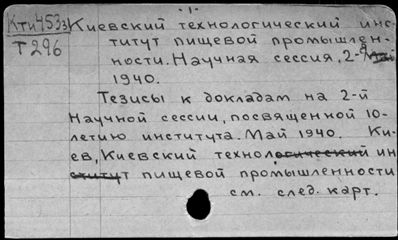 - 1 -
Кти453з Киевский технологический инс-
Т296 титут пищевой промышлен-
ности. Научная сессия, 2-я Май
1940.
Тезисы к докладам на 2-й
Научной сессии, посвященной 10-
летию института. Май 1940. Ки-
ев, Киевский технологический ин
ститут пищевой промышленности
см. след. карт.